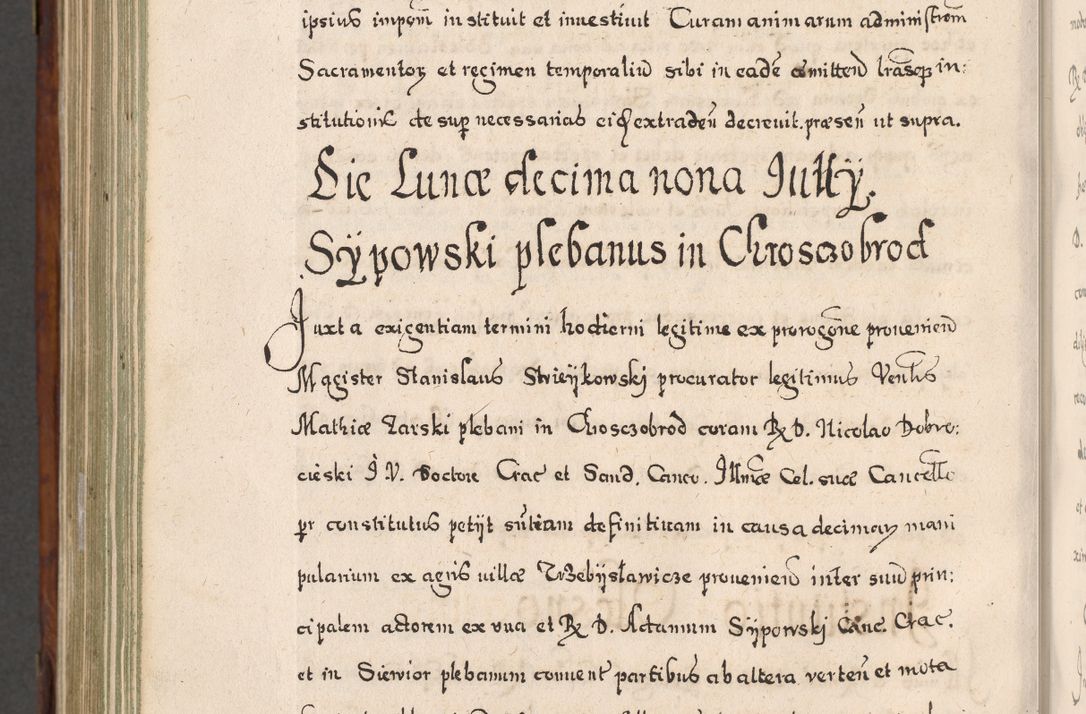 ipsius impom̃ instituit et inuestiuit Curam animarum administrom̃
Sacramentoꝝ et regimen temporaliũ sibi in eadē comitteñ lrasq; in:
stitutionis de sup necessarias eiq; extradeñ decreuit. præseñ ut supra.
Die Lunæ decima nona Iullÿ.
Sÿpowski plebanus in Chrosczobrod
Juxta exigentiam termini hodierni legitime ex prorogõne proueniеñ
Magister Stanislaus Strieÿkowskj procurator legitimus Venlis
Mathiæ Zarski plebani in Chosczobrod coram R. D. Nicolao Dobro:
cieski J. V. Doctore Crac et Sand. Canco. Illmæ Cel. suæ Cancello
pr constitutus petÿt sñtiam definitiuam in causa decimaꝝ mani
pularium ex agris uillæ Trzebÿslawicze proueniеñ inter suũ prin:
cipalem actorem ex una et R. D. Actanum Sÿpowskj Canc. Crac.
et in Siewior plebanum conuent partibus ab altera verteñ et mota